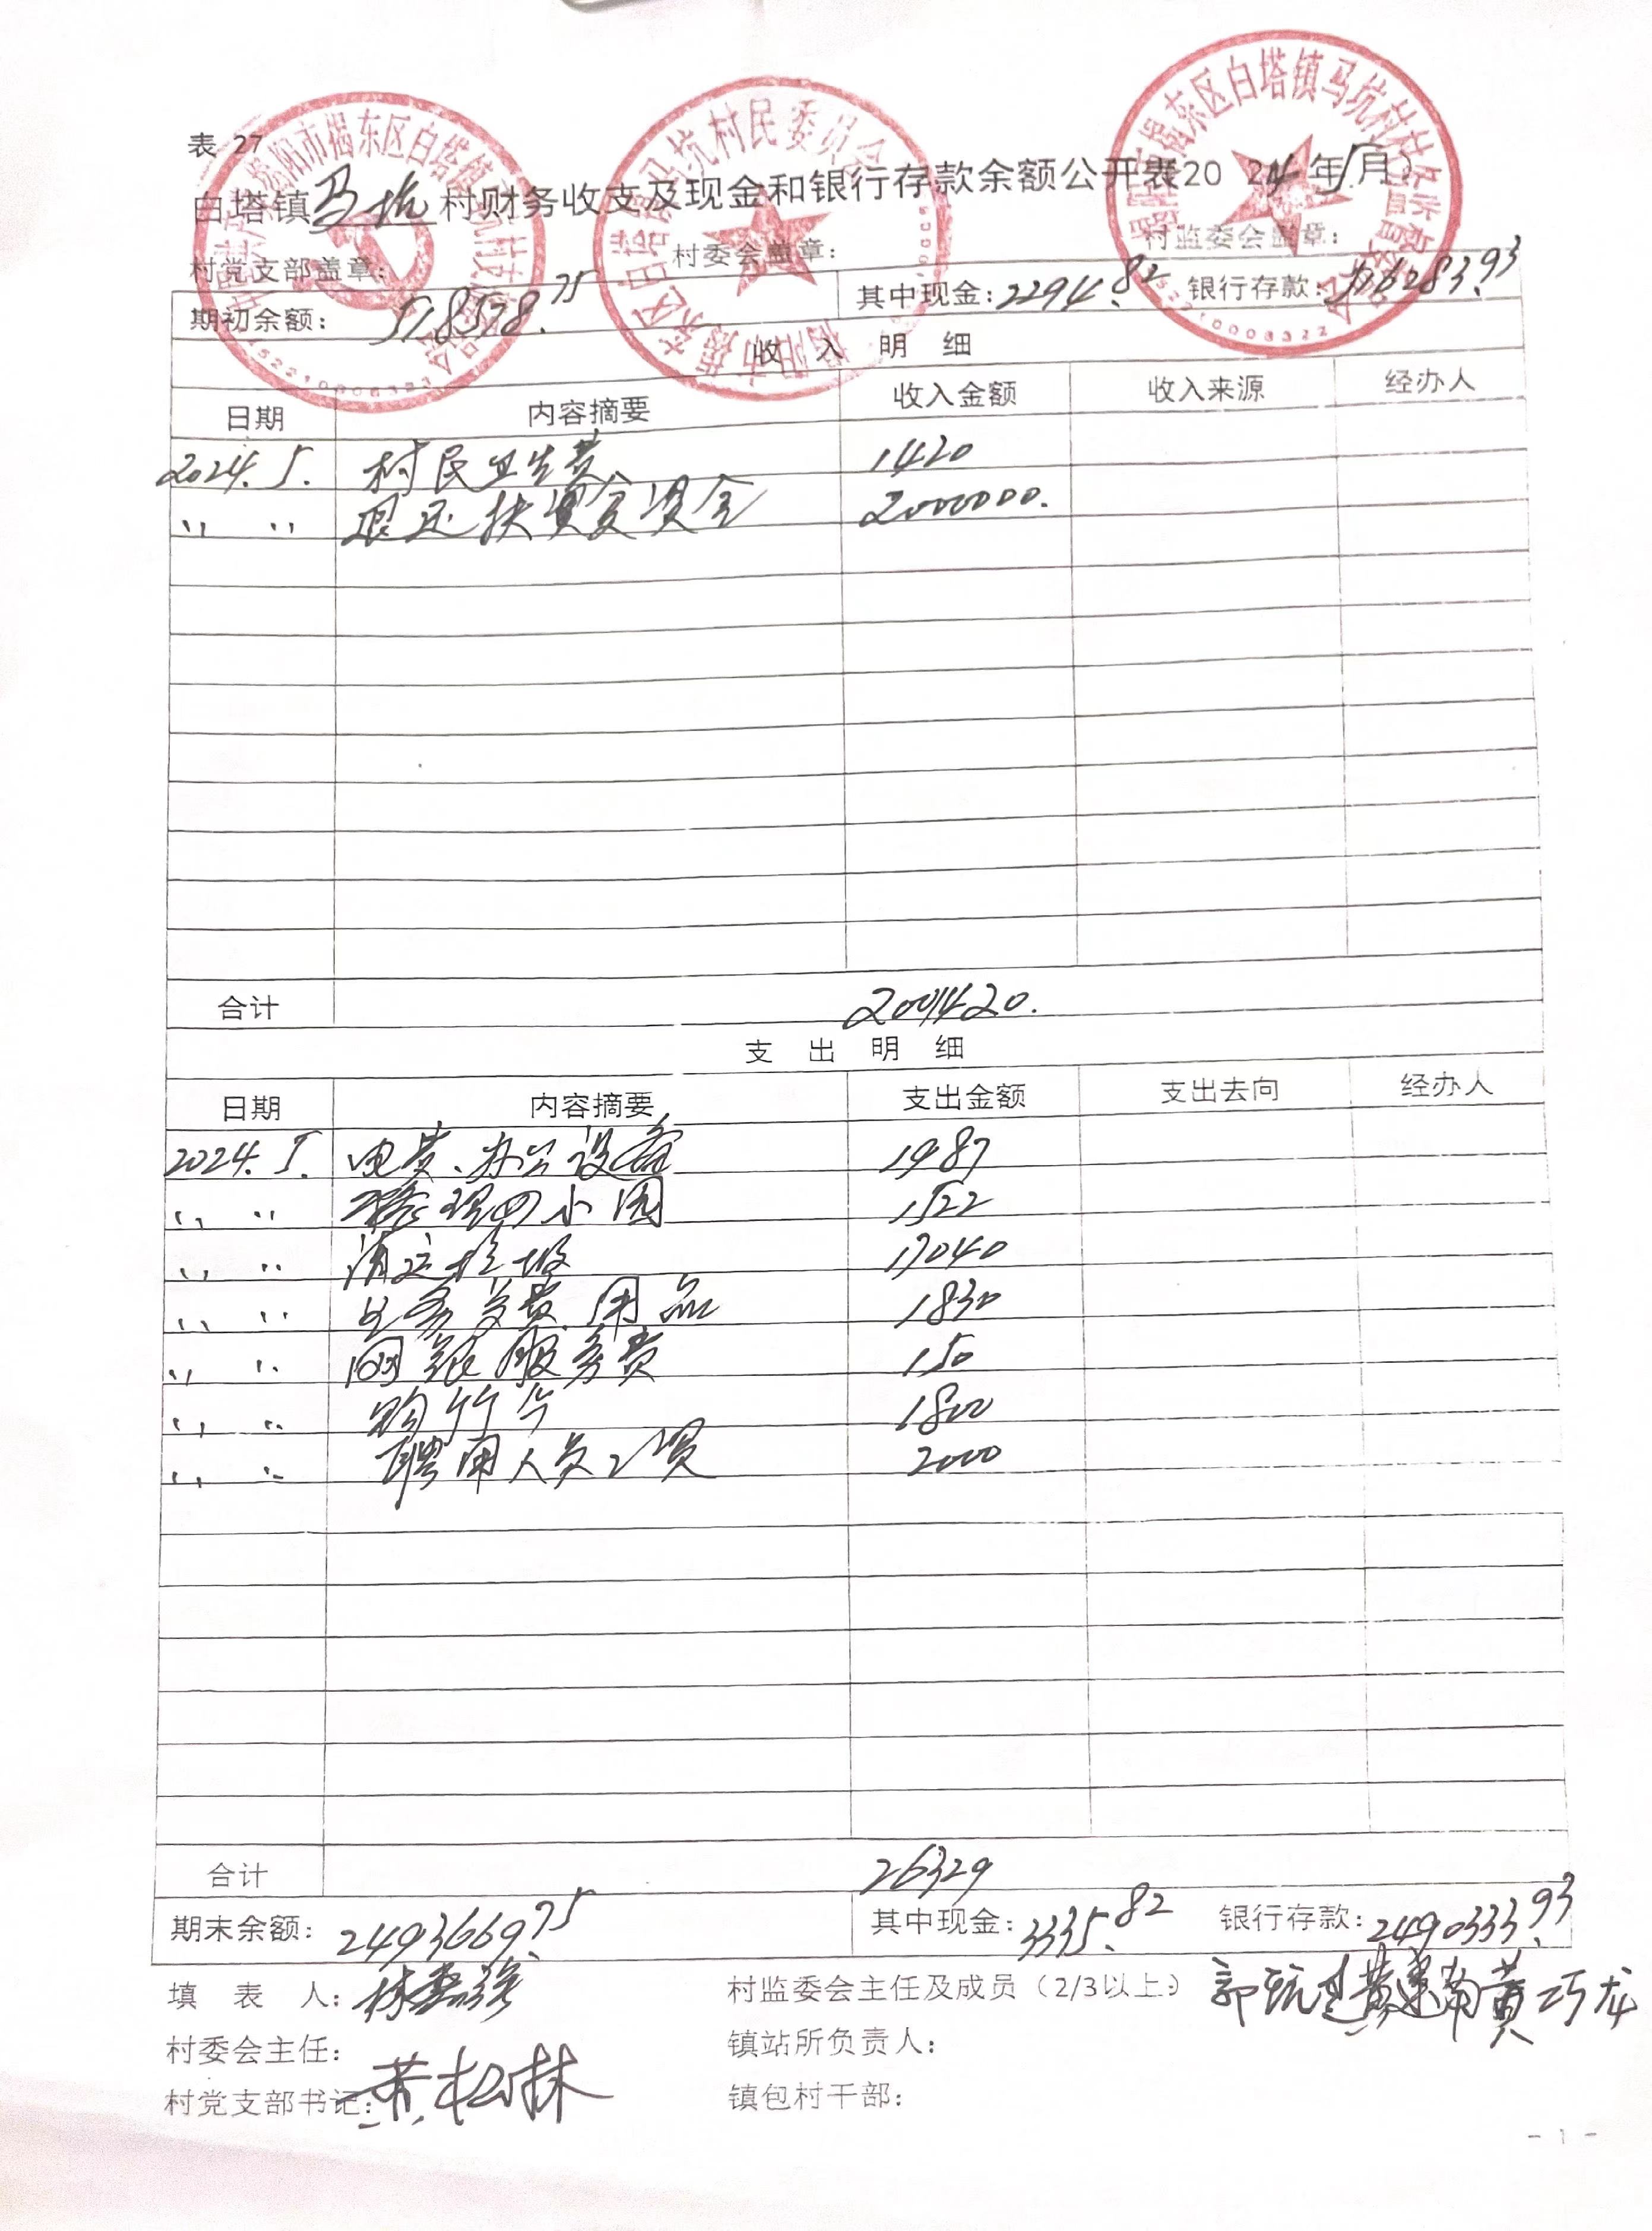 表 27
白塔镇马坑村财务收支及现金和银行存款余额公开表20 24年5月）
村党支部盖章： 村委会盖章： 村监委会盖章：
期初余额： 518578.75 其中现金：2294.82 银行存款：516283.93
收 入 明 细
日期 内容摘要 收入金额 收入来源 经办人
2024.5. 村民卫生费 1420
〃 〃 退还扶贫资金 2000000.
合计 2001420.
支 出 明 细
日期 内容摘要 支出金额 支出去向 经办人
2024.5. 电费、办公设备 1987
〃 〃 修理四小园 1522
〃 〃 清运垃圾 17040
〃 〃 用品 1830
〃 〃 网银服务费 150
〃 〃 购竹 1800
〃 〃 聘用人员工资 2000
合计 26329
期末余额：2493669.75 其中现金：3335.82 银行存款：2490333.93
填 表 人： 村监委会主任及成员（2/3以上）： 黄巧龙
村委会主任： 镇站所负责人：
村党支部书记：黄松林 镇包村干部：
- 1 -